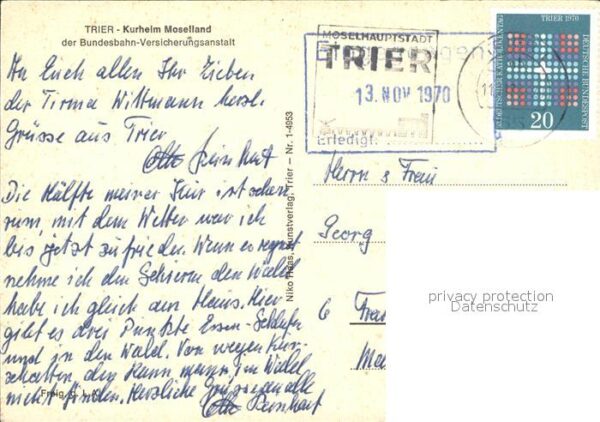 TRIER - Kurheim Moselland
der Bundesbahn-Versicherungsanstalt
An Euch allen Ihr Lieben
der Firma Wittmann herzl.
Grüsse aus Trier
Otto Reinhart
Die Hälfte meiner Kur ist schon
rum, mit dem Wetter war ich
bis jetzt zufrieden. Wenn es regnet
nehme ich den Schirm den Wald
habe ich gleich am Haus. Hier
gibt es drei Punkte Essen - Schlafen
und in den Wald. Von wegen Kur-
schatten, den kann man im Wald
nicht finden. Herzliche Grüsse an alle
Otto Reinhart
Niko Haas, Kunstverlag, Trier — Nr. 1-4953
MOSELHAUPTSTADT
TRIER
13. NOV 1970
Erledigt:
TRIER 1970
DEUTSCHE BUNDESPOST
DEUTSCHER KATHOLIKENTAG
20
Herrn & Frau
Georg
6
privacy protection
Datenschutz